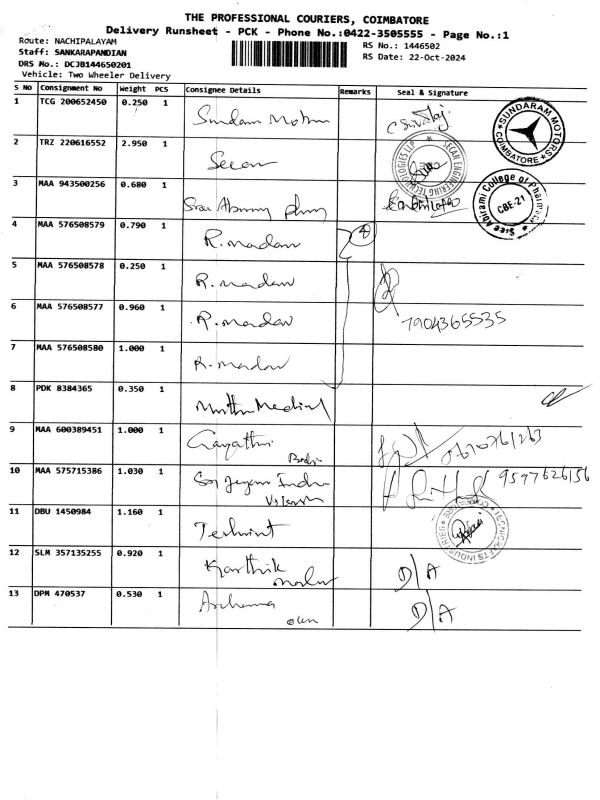 THE PROFESSIONAL COURIERS, COIMBATORE
Delivery Runsheet - PCK - Phone No.:0422-3505555 - Page No.:1
Route: NACHIPALAYAM
RS No.: 1446502
Staff: SANKARAPANDIAN
RS Date: 22-Oct-2024
DRS No.: DCJB144650201
Vehicle: Two Wheeler Delivery
S No Consignment No Weight PCS Consignee Details Remarks Seal & Signature
1 TCG 200652450 0.250 1 Sundaram Motors
SUNDARAM MOTORS COIMBATORE
2 TRZ 220616552 2.950 1 Secan
SECAN ENGINEERING TECHNOLOGIES LLP CBE
3 MAA 943500256 0.680 1
Sree Abirami College of Pharmacy CBE-21
4 MAA 576508579 0.790 1 R. madav 4
5 MAA 576508578 0.250 1 R. madav
6 MAA 576508577 0.960 1 R. madav 7904365535
7 MAA 576508580 1.000 1 R. madav
8 PDK 8384365 0.350 1 Muthu Medical
9 MAA 600389451 1.000 1 Gayathri
10 MAA 575715386 1.030 1 9597626156
11 DBU 1450984 1.160 1
12 SLM 357135255 0.920 1 Karthik D/A
13 DPM 470537 0.530 1 D/A